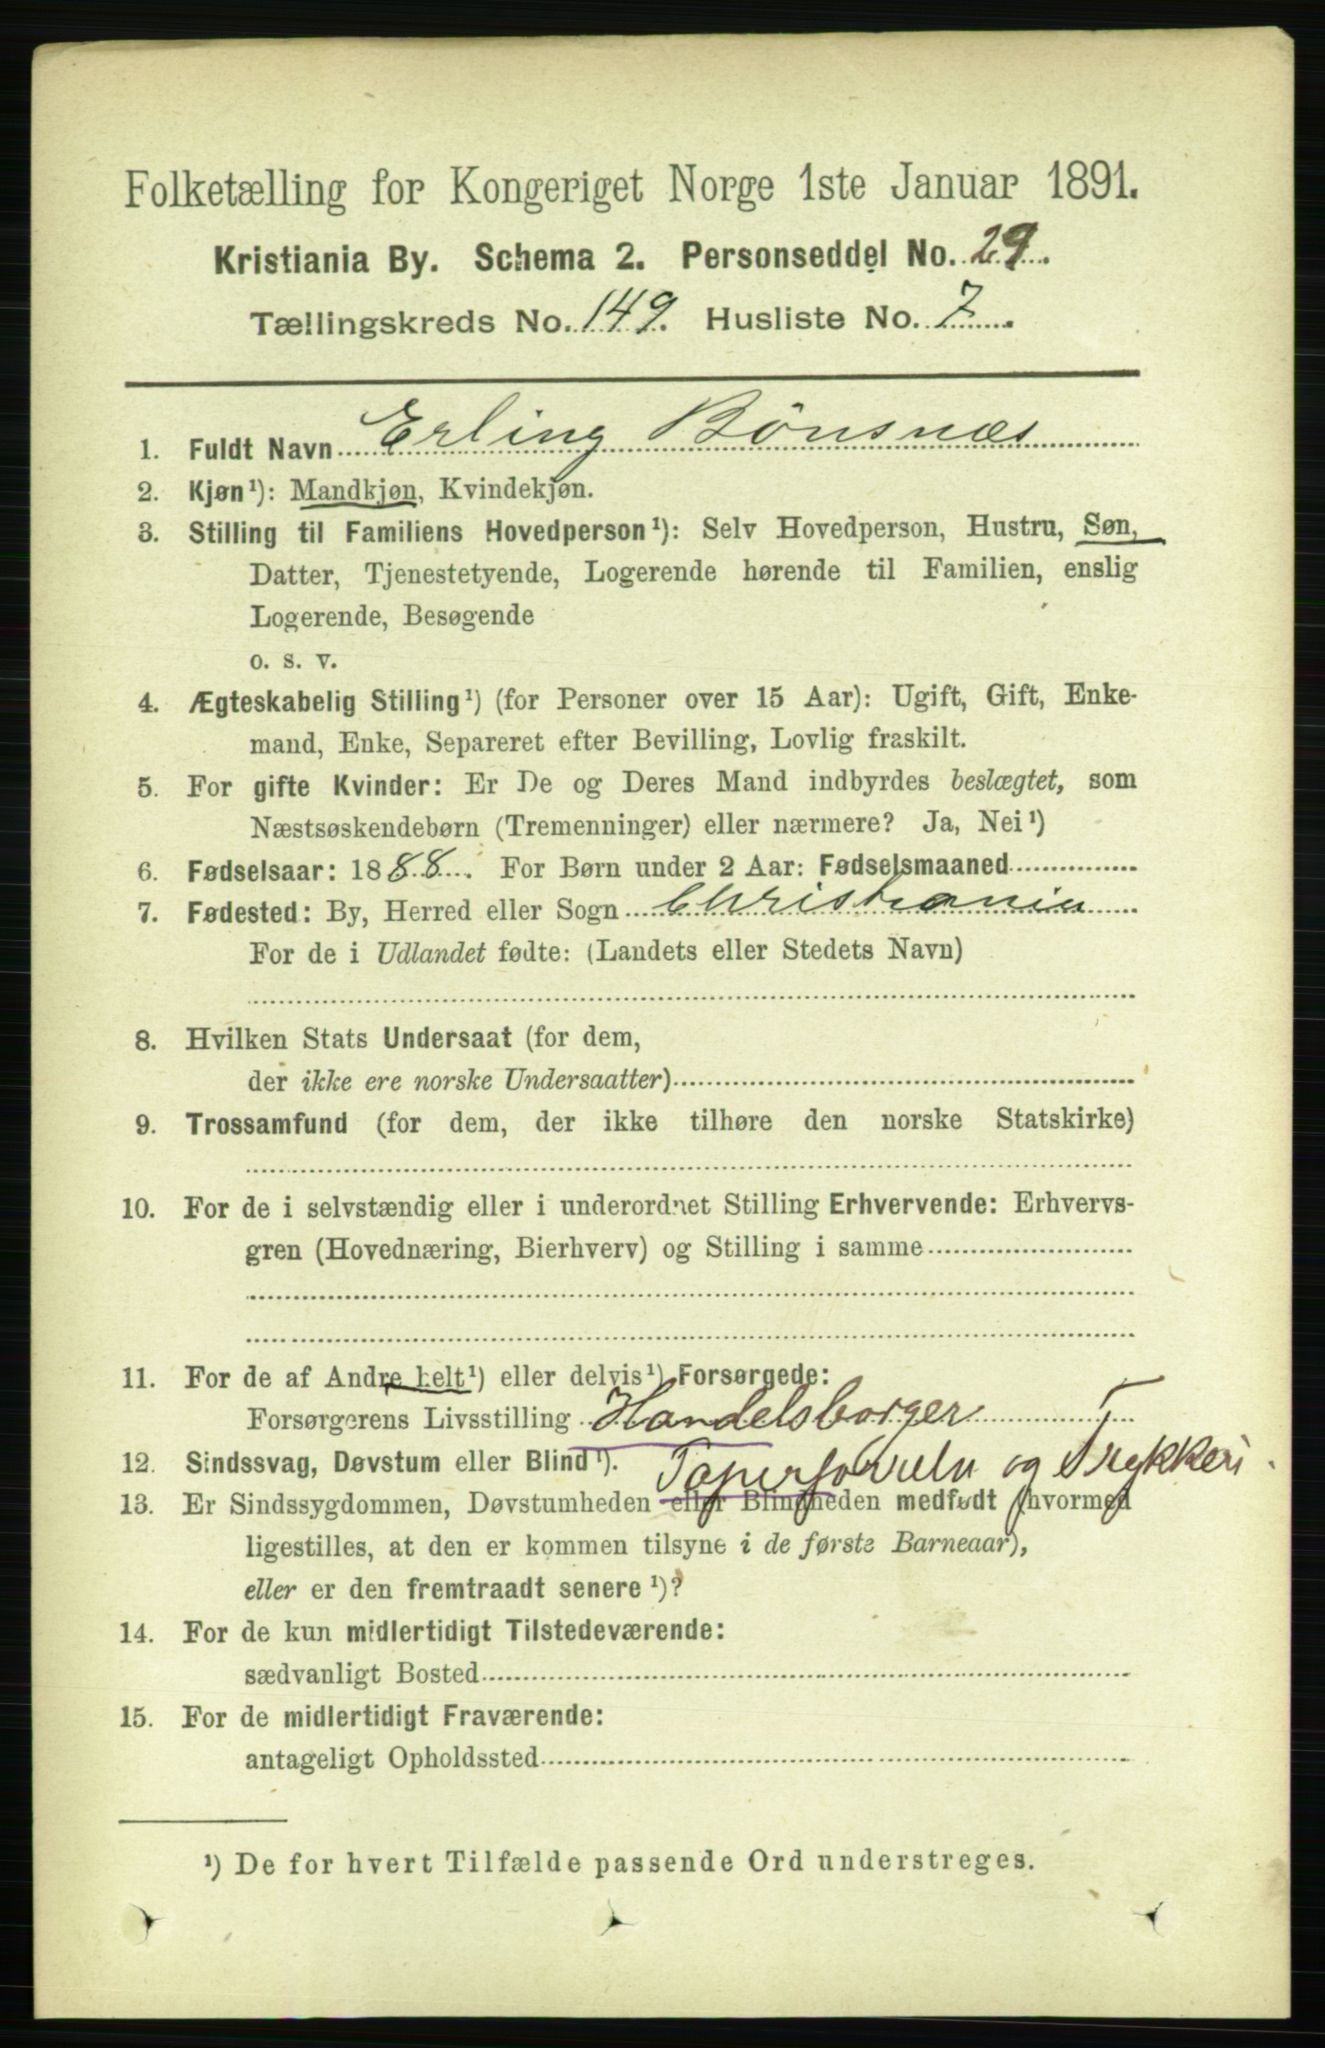 Folketælling for Kongeriget Norge 1ste Januar 1891.
Kristiania By. Schema 2. Personseddel No. 29.
Tællingskreds No. 149. Husliste No. 7.
1. Fuldt Navn Erling Bönsnæs
2. Kjøn¹): Mandkjøn, Kvindekjøn.
3. Stilling til Familiens Hovedperson¹): Selv Hovedperson, Hustru, Søn,
Datter, Tjenestetyende, Logerende hørende til Familien, enslig
Logerende, Besøgende
o. s. v.
4. Ægteskabelig Stilling¹) (for Personer over 15 Aar): Ugift, Gift, Enke-
mand, Enke, Separeret efter Bevilling, Lovlig fraskilt.
5. For gifte Kvinder: Er De og Deres Mand indbyrdes beslægtet, som
Næstsøskendebørn (Tremenninger) eller nærmere? Ja, Nei¹)
6. Fødselsaar: 1888. For Børn under 2 Aar: Fødselsmaaned
7. Fødested: By, Herred eller Sogn Christiania
For de i Udlandet fødte: (Landets eller Stedets Navn)
8. Hvilken Stats Undersaat (for dem,
der ikke ere norske Undersaatter)
9. Trossamfund (for dem, der ikke tilhøre den norske Statskirke)
10. For de i selvstændig eller i underordnet Stilling Erhvervende: Erhvervs-
gren (Hovednæring, Bierhverv) og Stilling i samme
11. For de af Andre helt¹) eller delvis¹) Forsørgede:
Forsørgerens Livsstilling Handelsborger
12. Sindssvag, Døvstum eller Blind¹). og Trykkeri
13. Er Sindssygdommen, Døvstumheden eller Blindheden medfødt (hvormed
ligestilles, at den er kommen tilsyne i de første Barneaar),
eller er den fremtraadt senere¹)?
14. For de kun midlertidigt Tilstedeværende:
sædvanligt Bosted
15. For de midlertidigt Fraværende:
antageligt Opholdssted
¹) De for hvert Tilfælde passende Ord understreges.